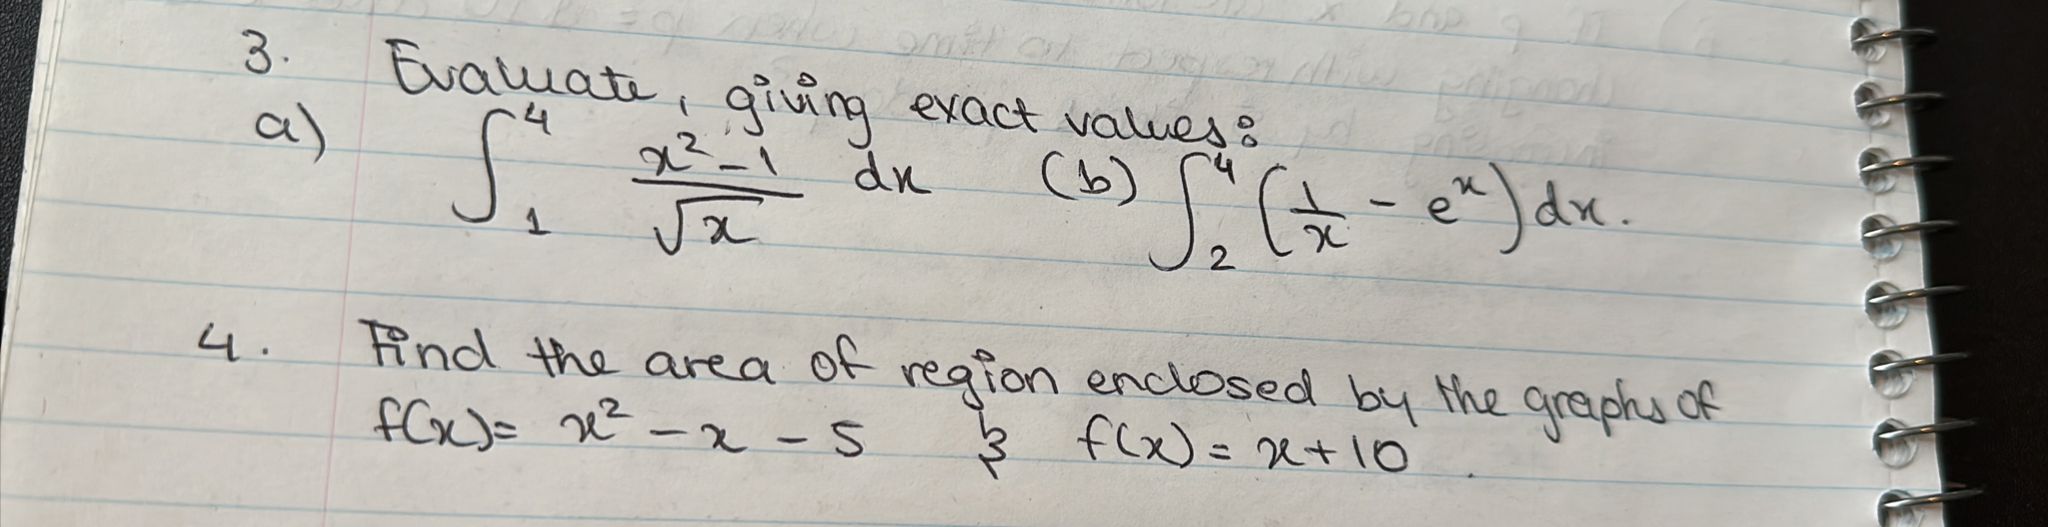 3. Evaluate, giving exact values:
a) ∫₁⁴ (x² - 1)/√x dx (b) ∫₂⁴ (1/x - eˣ) dx.
4. Find the area of region enclosed by the graphs of
f(x) = x² - x - 5 & f(x) = x + 10.